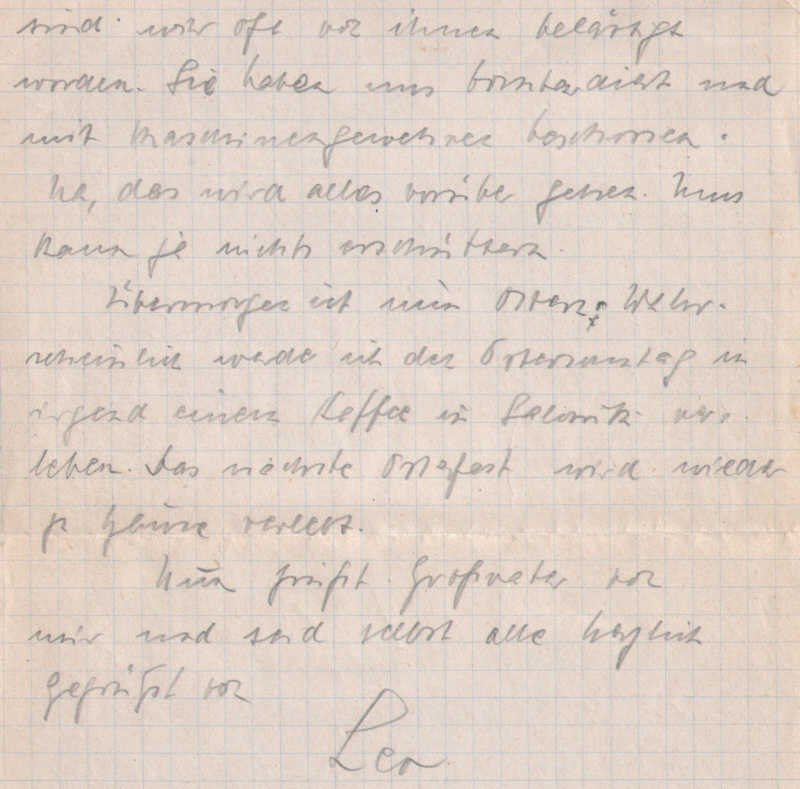 sind wir oft von ihnen belästigt
worden. Sie haben uns bombardiert und
mit Maschinengewehren beschossen.
Na, das wird alles vorüber gehen. Uns
kann ja nichts erschüttern.
Übermorgen ist nun Ostern. Wahr-
scheinlich werde ich den Ostersonntag in
irgend einem Kaffee in Saloniki ver-
leben. Das nächste Osterfest wird wieder
zu Hause verlebt.
Nun grüßt Großvater von
mir und seid selbst alle herzlich
gegrüßt von
Leo